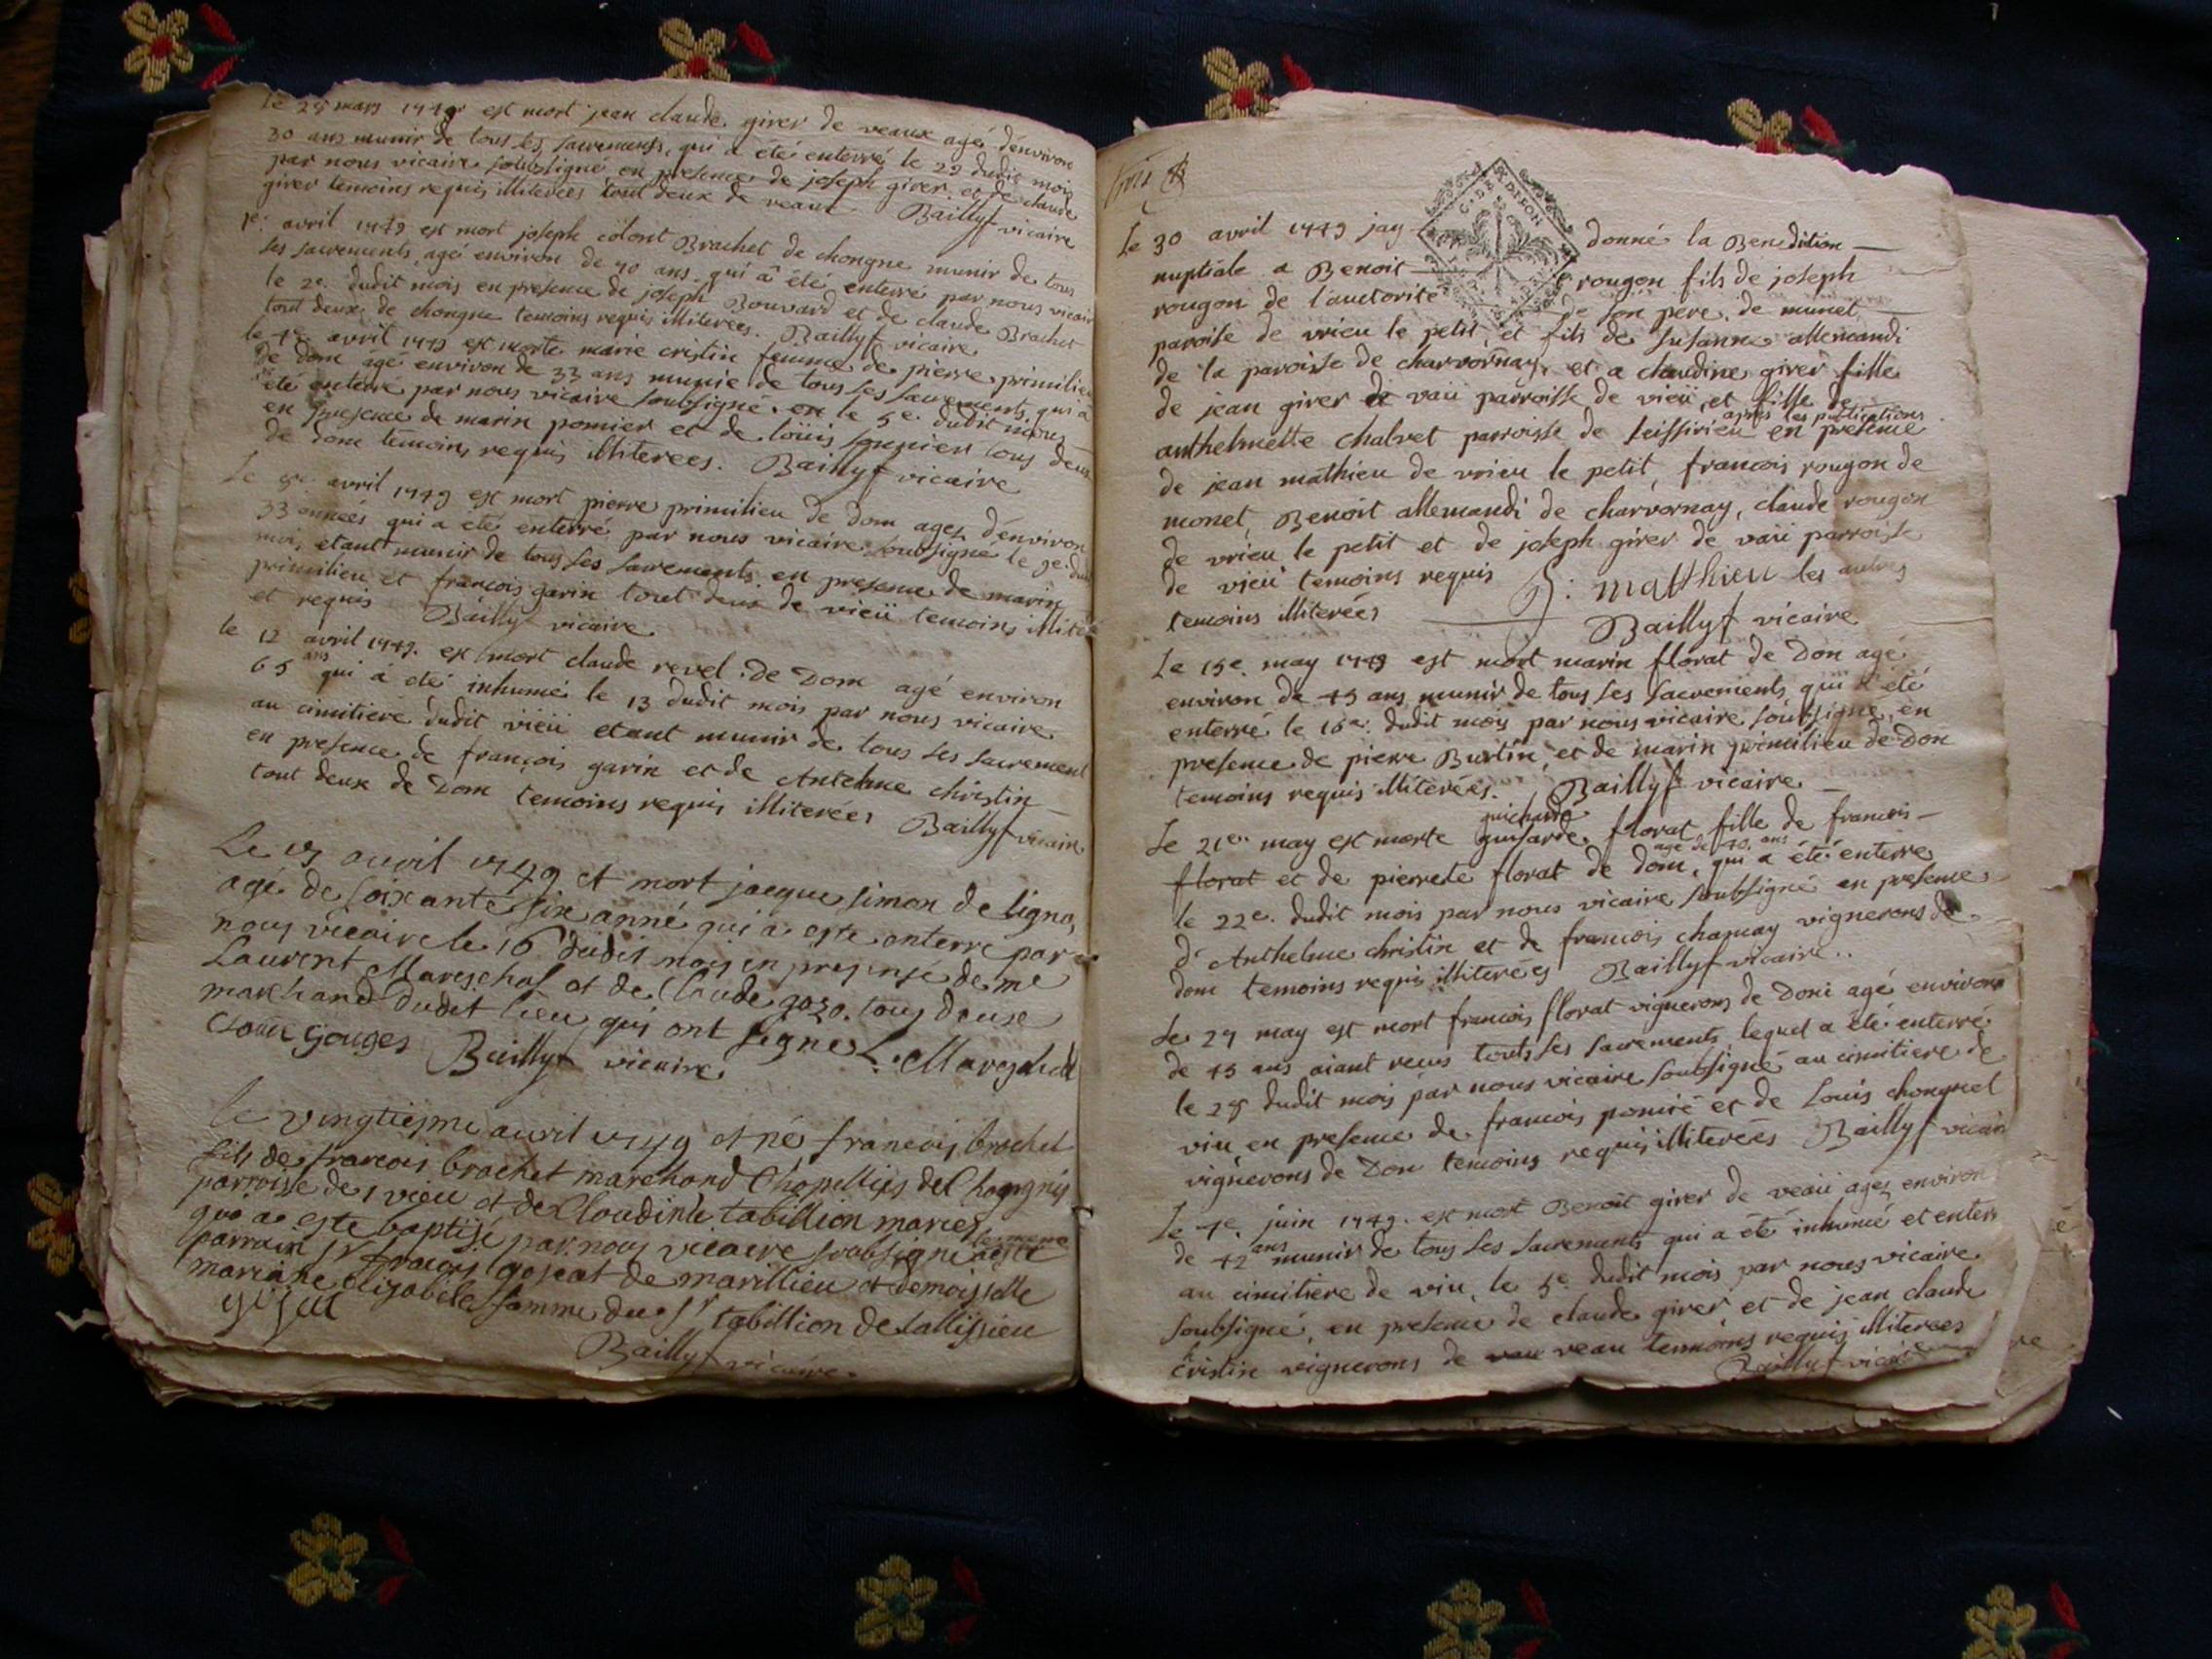 le 28 mars 1749 est mort jean claude girer de veaux agé dénviron
30 ans munir de tous les sacrements, qui a eté enterré le 29 dudit mois
par nous vicaire soubsigné en presence de joseph girer et de claude
girer temoins requis illiterées tout deux de veaux Baillyf vicaire
1er. avril 1749 est mort joseph colont Brachet de chongne munir de tous
ses sacrements, agé environ de 70 ans. qui a été enterré par nous vicair
le 2e. dudit mois en présence de joseph Bouvard et de claude Brachet
tout deux de chongne temoins requis illiterées. Baillyf vicaire
le 4e avril 1749 est morte marie cristin femme de pierre primilieu
de dom âgé environ de 33 ans munie de tous ses sacrements, qui a
été enterré par nous vicaire soubsigné. en le 5e. dudit mois
en presence de marin pomier et de loüis pomier tous deux
de dom temoins requis illiterees. Baillyf vicaire
Le 8e avril 1749 est mort pierre primilieu de dom ages d'environ
33 années qui a eté enterré par nous vicaire soubsigne le 9e. dud
moi, etant munir de tous ses sacrements en presence de marin
primilieu et francois garin tout deux de vieü temoins illite
et requis Baillyf vicaire
le 12 avril 1749. est mort claude revel de Dom agé environ
65 ans qui á eté inhumé le 13 dudit mois par nous vicaire
au cimitiere dudit vieü etant munir de tous ses sacrement
en presence de françois garin et de Antelme christin
tout deux de Dom temoins requis illiterées Baillyf vicaire
Le 15 avril 1749 et mort jacque simon de ligno,
agé de soixante six anné qui a este enterre par
nous vicaire le 16 dudit mois en presense de me
Laurent Mareschal et de Claude tous deuse
marchand dudet lieu qui ont signe L. Mareschal
gouges Baillyf vicaire
le vingtiesme avril 1749 et né francois brochet
fils de francois brochet marchand Chapellies de Chongnes
parroisse de vieu et de Cloudine tabillion maries
qui a este baptisé par nous vicaire soubsigne
parrain sr francois gojeat de marillieu et demoiselle
mariane Elizabele famme du sr tabillion de tallissieu
Baillyf vicaire.
Le 30 avril 1749 jay donné la Benediction
nuptiale a Benoit rougon fils de joseph
rougon de l'auctorité de son pere, de munet,
paroisse de vrieu le petit, et fils de susanne allemandi
de la paroisse de charvornay, et a claudine girer fille
de jean girer de vaü parroisse de vieü, et fille de
après les publications
anthelmette chalvet parroisse de seissirieu en presence
de jean mathieu de vrieu le petit, francois rougon de
monet, Benoit allemandi de charvornay, claude rougon
de vrieu le petit et de joseph girer de vaü parroisse
de vieü temoins requis matthieu les autres
temoins illiterées Baillyf vicaire
Le 15e. may 1749 est mort marin florat de Don agé
environ de 45 ans munir de tous ses sacrements qui a été
enterré le 16e. dudit moy par nous vicaire soubsigné, en
presence de pierre Burtin, et de marin primilieu de Don
temoins requis illiterées. Baillyf vicaire
guicharde
Le 21e. may est morte guisarde florat fille de francois
agé de 40. ans
florat et de pierrete florat de dom, qui a été enterre
le 22e. dudit mois par nous vicaire soubsigné en presence
d'Anthelme christin et de francois chapuay vignerons de
dom temoins requis illiterées Baillyf vicaire..
Le 27 may est mort francois florat vignerons de Doni agé environs
de 45 ans aiant recus touts ses sacrements lequel a été enterré
le 28 dudit mois par nous vicaire soubsigné au cimitiere de
viu en presence de francois pomié et de Louis chongnel
vignerons de Don temoins requis illiterées Baillyf vicair
Le 4e. juin 1749. est mort Benoit girer de veaü ages environ
de 42 ans munir de tous ses sacrements qui a été inhumé et enterr
au cimitiere de viu, le 5e. dudit mois par nous vicaire
soubsigné, en presence de claude girer et de jean claude
cristin vignerons de veau temoins requis illiterees
Baillyf vicaire